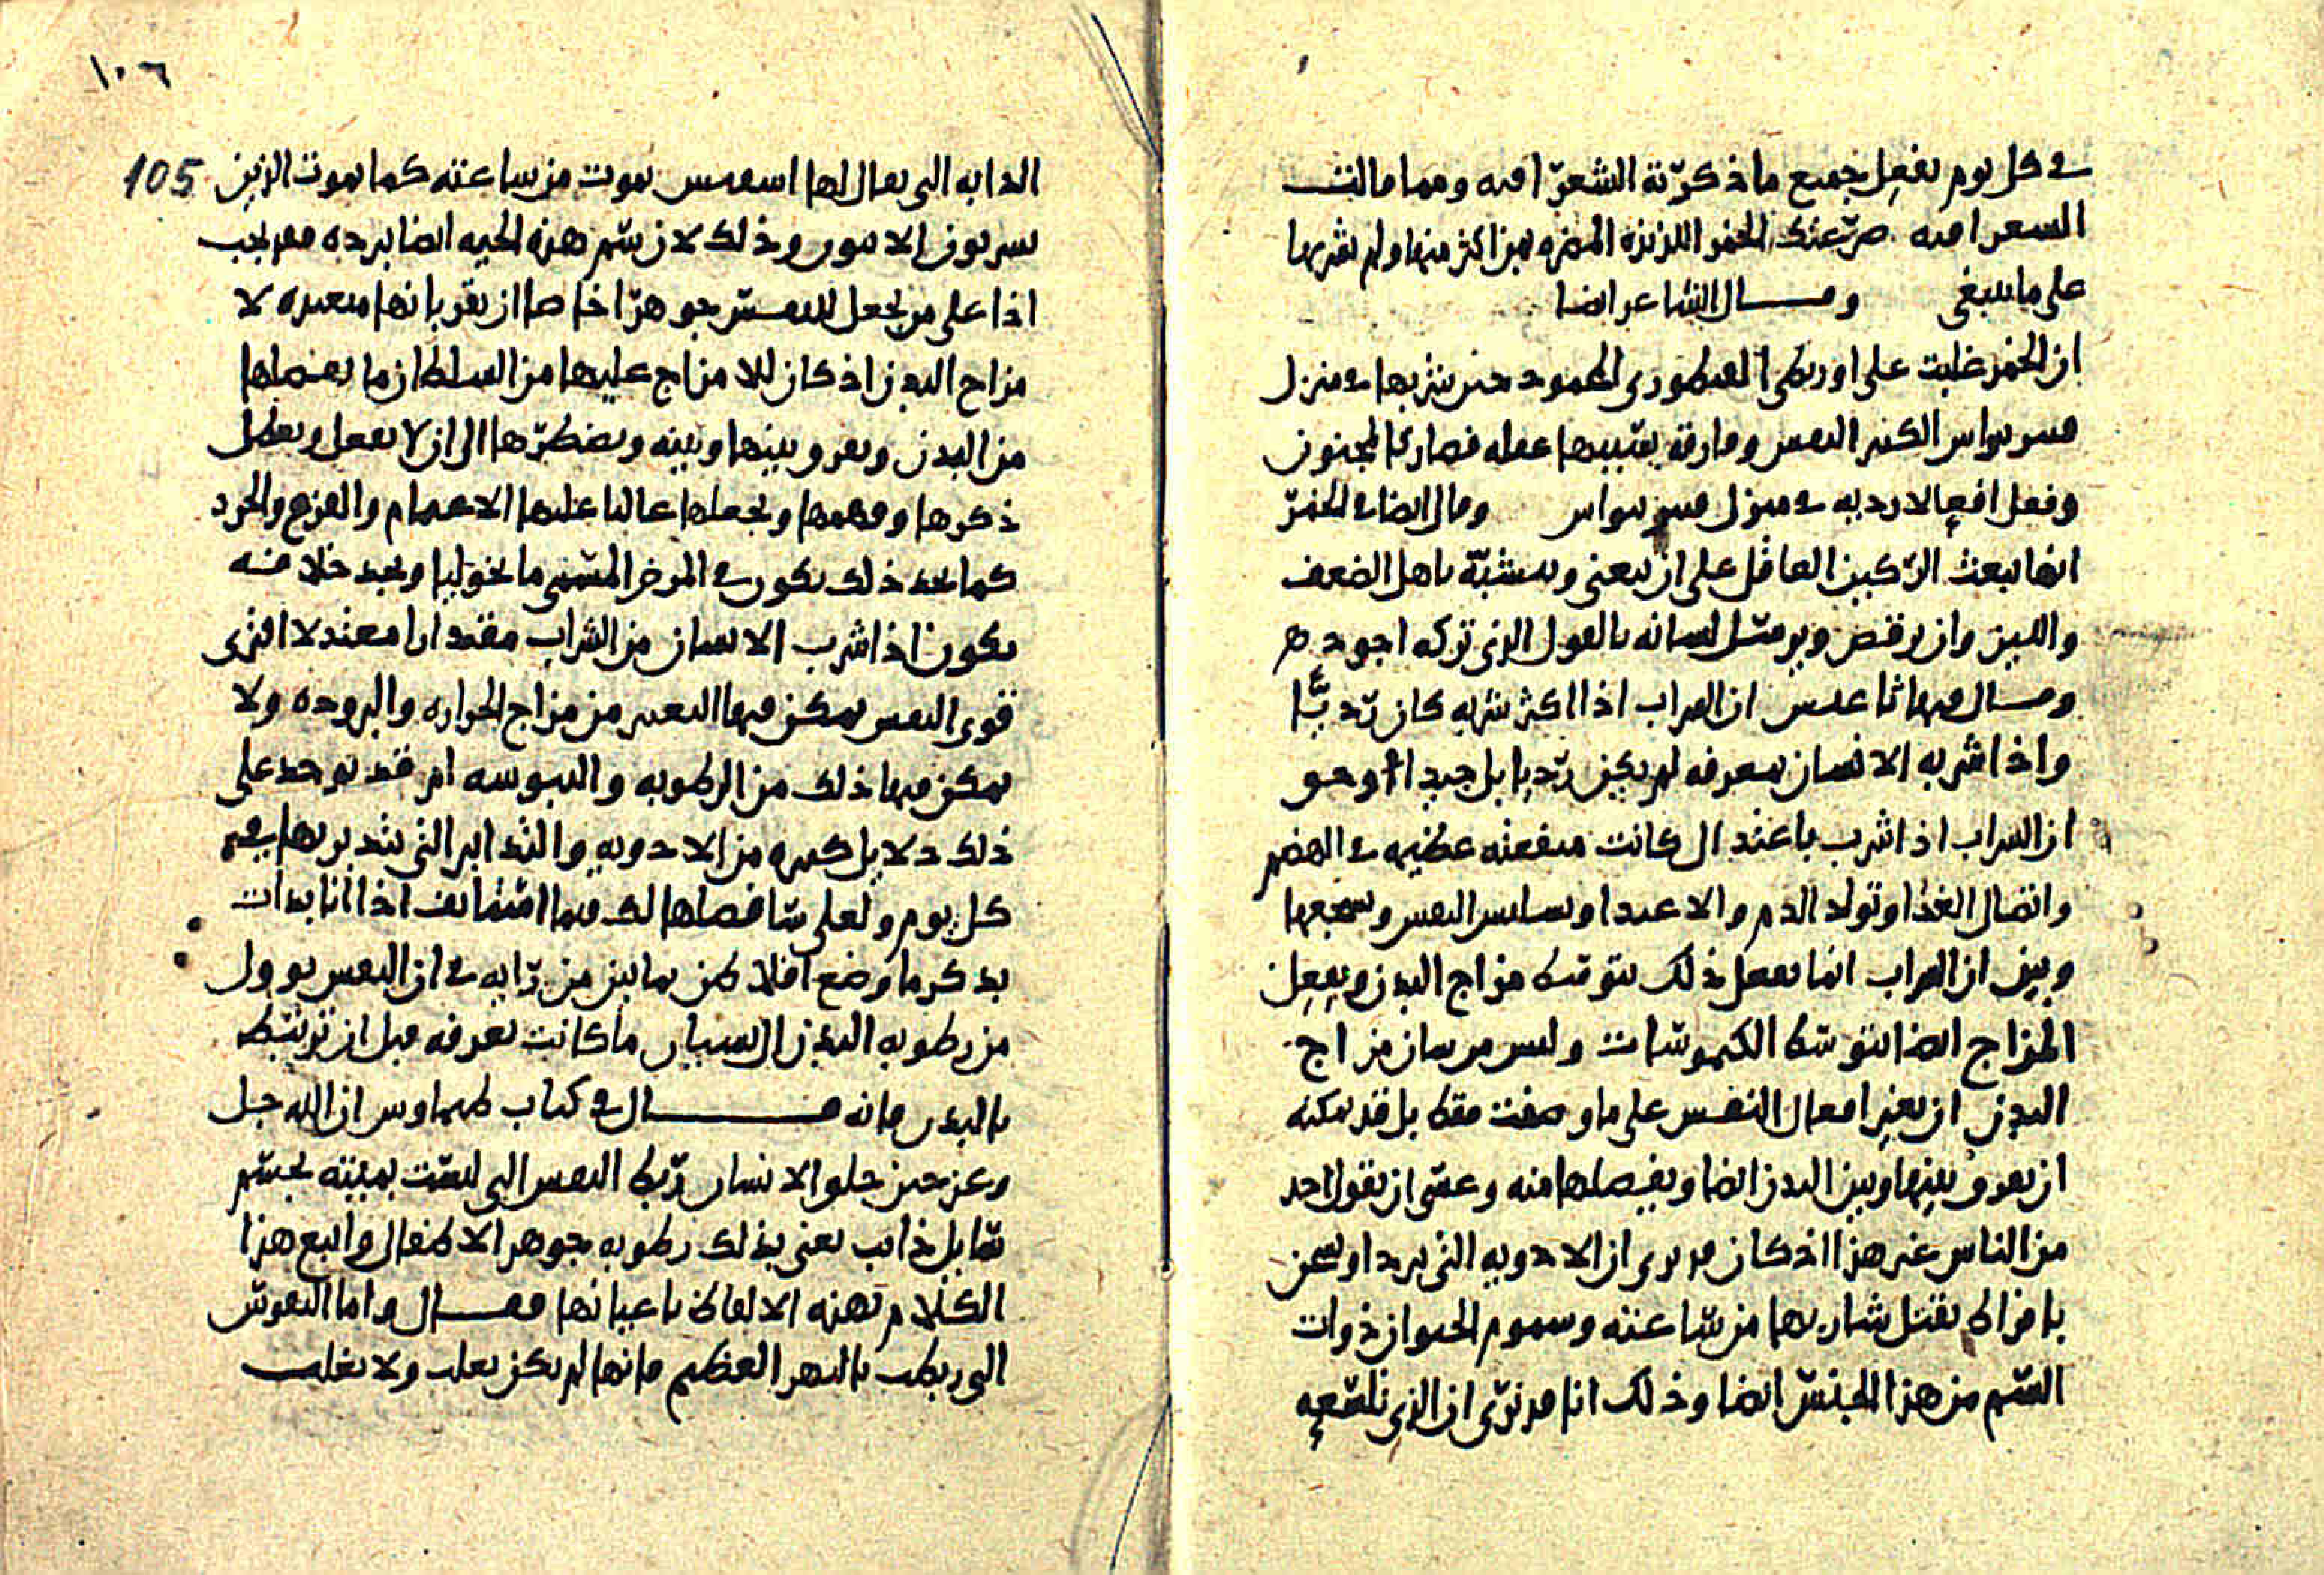 في كل يوم يفعل جميع ما ذكرته الشعرا فيه ومما قالت
السعرا فيه ضرتك الخمر اللذيذه المضره بمن اكثر منها ولم يشربها
على ما ينبغي وقال الشاعر ايضا
ان الخمر غلبت على اوريطى القنطورى المحمود حين شربها في منزل
النفس وفارقه بسببها عقله فصار كالمجنون
وفعل افعالا رديه في منزل وقال ايضا في الخمر
انها تبعث الركين العاقل على ان يغني ويتشبه باهل الضعف
واللين وان يرقص ويرسل لسانه بالقول الذي تركه اجود
وقال فيها ان الشراب اذا اكثر شربه كان رديا
واذا شربه الانسان بمعرفه لم يكن رديا بل جيدا وهو
ان الشراب اذا شرب باعتدال كانت منفعته عظيمه في الهضم
واتصال الغذا وتولد الدم والاغتذا النفس وتشجعها
وبين ان الشراب انما يفعل ذلك بتوسط مزاج البدن ويفعل
المزاج ايضا بتوسط الكيموسات وليس مزاج
البدن ان يغير افعال النفس على ما وصفت فقط بل قد يمكنه
ان يفرق بينها وبين البدن ايضا ويفصلها منه وعسى ان يقول احد
من الناس غير هذا اذ كان قد يرى ان الادويه التي تبرد او تسخن
بافراط يقتل شاربها من ساعته وسموم الحيوان ذوات
السم من هذا الجنس ايضا وذلك انا قد نرى ان الذي تلسعه
١٠٦
105
الدابه التي يقال لها اسقس يموت من ساعته كما يموت الذين
يشربون الافيون وذلك لان سم هذه الحيه ايضا يبرده فقد يجب
اذا على من يجعل للنفس جوهرا خاصا ان يقر بانها متعبده لا
مزاج البدن اذ كان للامزاج عليها من السلطان ما يفصلها
من البدن ويفرق بينها وبينه ويضطرها الى ان لا تعقل ويعطل
ذكرها وفهمها ويجعلها غالبا عليها الاغتمام والفزع والحرد
كما نجد ذلك يكون في المرض المسمى مالنخوليا ونجد خلافه
يكون اذا شرب الانسان من الشراب مقدارا معتدلا افترى
قوى النفس يمكن فيها التغير من مزاج الحراره والبروده ولا
يمكن فيها ذلك من الرطوبه واليبوسه ام قد يوجد على
ذلك دلايل كثيره من الادويه والتدابير التي يتدبر بها
كل يوم ولعلي سافصلها لك فيما استانف اذا انا بدات
بذكر ما وضع افلاطن بما بين من رايه في ان النفس يوول
من رطوبه البدن الى نسيان ما كانت تعرفه قبل ان ترتبط
بالبدن فانه قال في كتاب طيماوس ان الله جل
وعز حين خلق الانسان ربط النفس التي ليست بميته بجسم
سايل ذايب يعني بذلك رطوبه جوهر الاطفال واتبع هذا
الكلام بهذه الالفاظ باعيانها فقال واما النفوس
التي ربطت بالنهر العظيم فانها لم تكن تغلب ولا تغلب